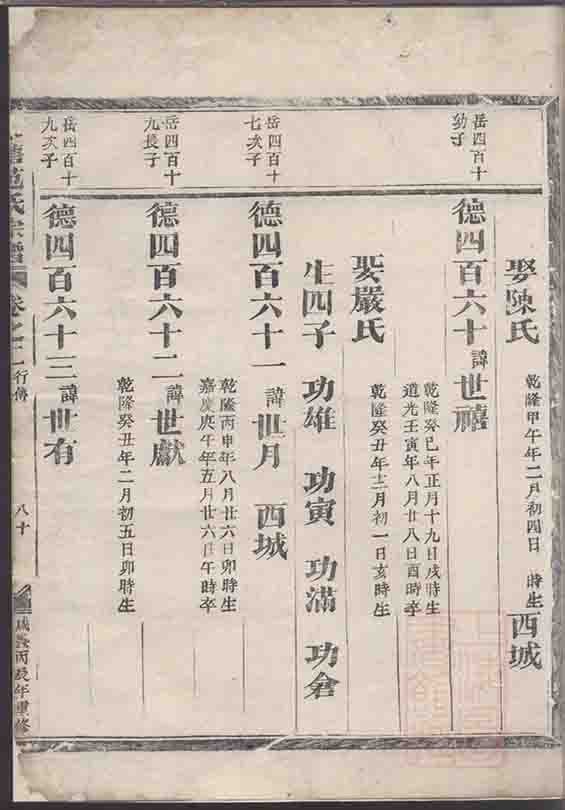 娶陳氏 乾隆甲午年二月初四日 時生 西城
岳四百十
幼子
德四百六十 諱世禧
乾隆癸巳年正月十九日戌時生
道光壬寅年八月廿八日酉時卒
娶嚴氏 乾隆癸丑年十二月初一日亥時生
生四子 功雄 功寅 功滿 功倉
岳四百十
七次子
德四百六十一 諱世月 西城
乾隆丙申年八月廿六日卯時生
嘉慶庚午年五月廿六日午時卒
岳四百十
九長子
德四百六十二 諱世獻
乾隆癸丑年二月初五日卯時生
岳四百十
九次子
德四百六十三 諱世有
范氏宗譜 卷之二 行傳 八十 咸豐丙辰年重修